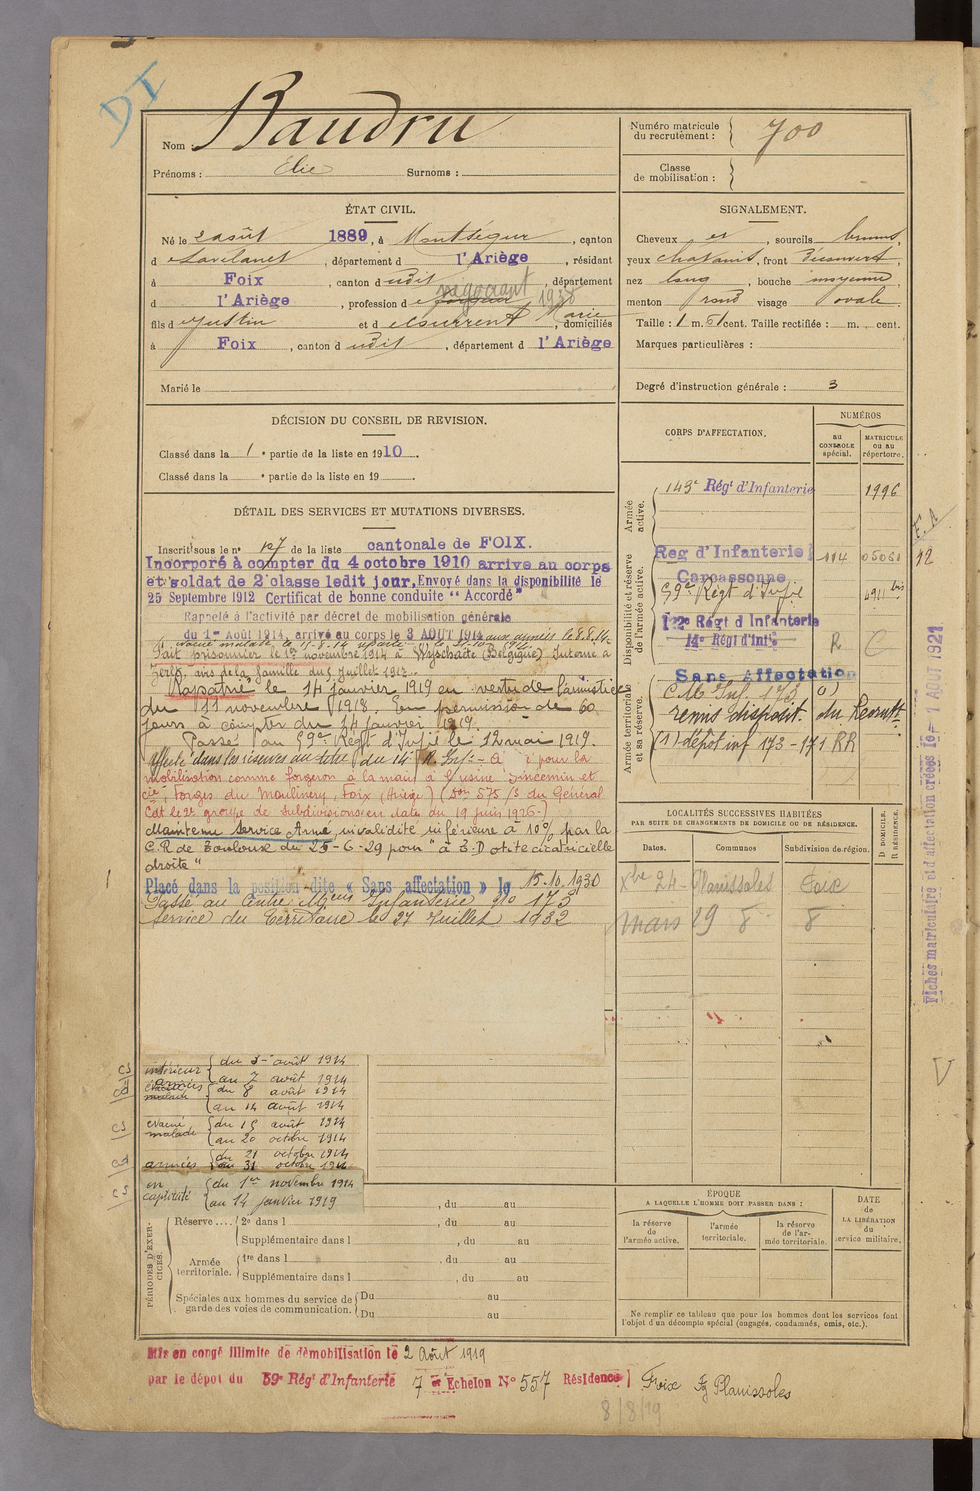 DI
Nom Baudru
Prénoms : Élie Surnoms :
Numéro matricule du recrutement : 700
Classe de mobilisation :
ÉTAT CIVIL.
Né le 2 août 1889, à Montségur, canton
d Lavelanet, département d l'Ariège, résidant
à Foix, canton d udit, département
d l'Ariège, profession d négociant 1938
fils d Justin et d Laurrent Marie, domiciliés
à Foix, canton d udit, département d l'Ariège
Marié le
SIGNALEMENT.
Cheveux et, sourcils bruns,
yeux chatains, front découvert,
nez long, bouche moyenne,
menton rond visage ovale.
Taille : 1 m. 61 cent. Taille rectifiée : m. cent.
Marques particulières :
Degré d'instruction générale : 3
DÉCISION DU CONSEIL DE REVISION.
Classé dans la 1e partie de la liste en 1910.
Classé dans la e partie de la liste en 19
DÉTAIL DES SERVICES ET MUTATIONS DIVERSES.
Inscrit sous le n° 127 de la liste cantonale de FOIX.
Incorporé à compter du 4 octobre 1910 arrivé au corps
et soldat de 2e classe ledit jour. Envoyé dans la disponibilité le
25 Septembre 1912 Certificat de bonne conduite "Accordé"
Rappelé à l'activité par décret de mobilisation générale
du 1er Août 1914, arrivé au corps le 3 AOUT 1914 aux armées le 8.8.14.
Fait prisonnier le 1er novembre 1914 à Wyschaëte (Belgique) Interné à
Zerbst, avis de la famille du 5 juillet 1915.
Rapatrié le 14 janvier 1919 en vertu de l'amistice
du 11 novembre 1918. En permission de 60
jours à compter du 14 janvier 1919.
Passé au 59e Régt d'Infie le 12 mai 1919.
Affecté dans les réserves au titre du 14e R. Inf.- A é pour la
mobilisation comme forgeron à la main à l'usine Jincemin et
Cie, Forges du Moulinery, Foix (Ariège) (Don 575/S du Général
Cdt le 2e groupe de Subdivisions en date du 19 juin 1926.)
Maintenu Service Armé, invalidité inférieure à 10% par la
C.R de Toulouse du 25-6-29 pour "à 3.D otite cicatricielle
droite"
Placé dans la position dite « Sans affectation » le 15.10.1930
Passé au Centre Meurs Infanterie No 173
Service du Territoire le 27 Juillet 1932
CORPS D'AFFECTATION.
NUMÉROS
au CONTROLE spécial.
MATRICULE ou au répertoire.
Armée active.
143e Régt d'Infanterie 1996
Disponibilité et réserve de l'armée active.
Reg d'Infanterie 114 05061 12
Carcassonne
59e Régt d'Infie 4911 bis
Régt d'Infanterie
14e Régt d'Infie R C
Armée territoriale et sa réserve.
Sans Affectation
C M Inf. 173 (1)
remis disposit. du Recrutt
(1) dépôt inf 173-171 RR
Fiches matriculaire et d'affectation créées le 1 AOUT 1921
LOCALITÉS SUCCESSIVES HABITÉES
PAR SUITE DE CHANGEMENTS DE DOMICILE OU DE RÉSIDENCE.
Dates. Communes Subdivision de région. D DOMICILE. R RÉSIDENCE.
Xbre 24 - Planissoles Foix
Mars 29 8 8
intérieur du 3 août 1914
au 7 août 1914
armées du 8 août 1914
au 14 août 1914
évacué malade du 15 août 1914
au 20 octobre 1914
armées du 21 octobre 1914
au 31 octobre 1914
en captivité du 1er novembre 1914
au 14 janvier 1919
, du au
PÉRIODES D'EXERCICES.
Réserve .... 2e dans l , du au
Supplémentaire dans l , du au
Armée territoriale. 1re dans l , du au
Supplémentaire dans l , du au
Spéciales aux hommes du service de garde des voies de communication. Du au
Du au
ÉPOQUE
A LAQUELLE L'HOMME DOIT PASSER DANS :
la réserve de l'armée active.
l'armée territoriale.
la réserve de l'armée territoriale.
DATE de LA LIBÉRATION du service militaire.
Ne remplir ce tableau que pour les hommes dont les services font
l'objet d'un décompte spécial (engagés, condamnés, omis, etc.).
Mis en congé illimité de démobilisation le 2 Août 1919
par le dépôt du 59e Régt d'Infanterie 7e Echelon N° 557 Résidence Foix Planissoles
8/8/19